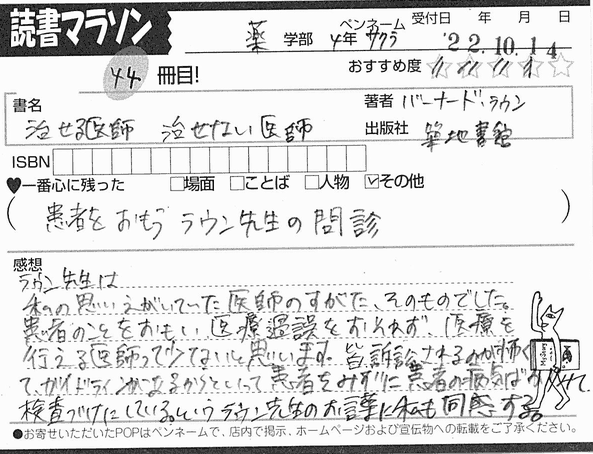 読書マラソン
薬 学部 4年 ペンネーム サクラ 受付日 年 月 日
'22.10.14
44 冊目!
おすすめ度
書名
治せる医師 治せない医師
著者 バーナード・ラウン
出版社 築地書館
ISBN
♥一番心に残った □場面 □ことば □人物 ☑その他
( 患者をおもう ラウン先生の問診 )
感想
ラウン先生は
私の思いえがいていた医師のすがた、そのものでした。
患者のことをおもい 医療過誤をおそれず、医療を
行える医師って少ないと思います。皆訴訟されるのが怖く
て、ガイドラインがあるからといって患者をみずに患者の病気ばか
検査づけにしている。というラウン先生のお言葉に私も同感する。
●お寄せいただいたPOPはペンネームで、店内で掲示、ホームページおよび宣伝物への転載をご了承ください。